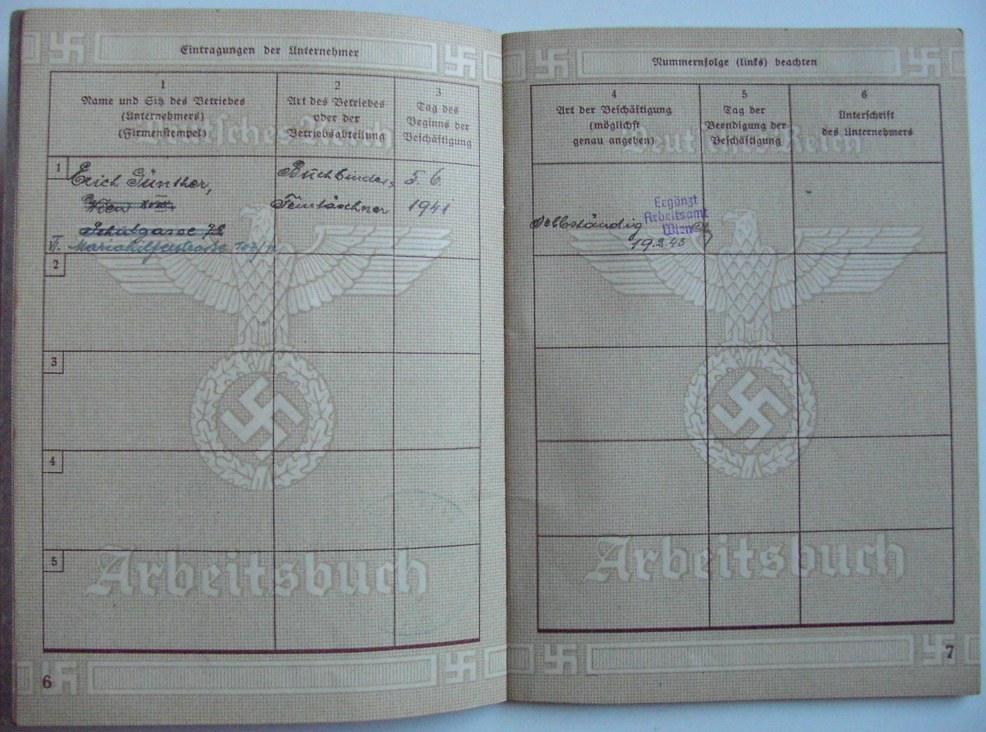 Eintragungen der Unternehmer
1
Name und Sitz des Betriebes
(Unternehmers)
(Firmenstempel)
2
Art des Betriebes
oder der
Betriebsabteilung
3
Tag des
Beginns der
Beschäftigung
Deutsches Reich
1
Erich Günther,
Wien XVIII.
Schulgasse 72
VI. Mariahilferstraße
Buchbinder,
Feintäschner
5.6.
1941
2
3
4
5
Arbeitsbuch
6
Nummernfolge (links) beachten
4
Art der Beschäftigung
(möglichst
genau angeben)
5
Tag der
Beendigung der
Beschäftigung
6
Unterschrift
des Unternehmers
Deutsches Reich
Selbständig
19.2.43
Ergänzt
Arbeitsamt
Wien
Arbeitsbuch
7